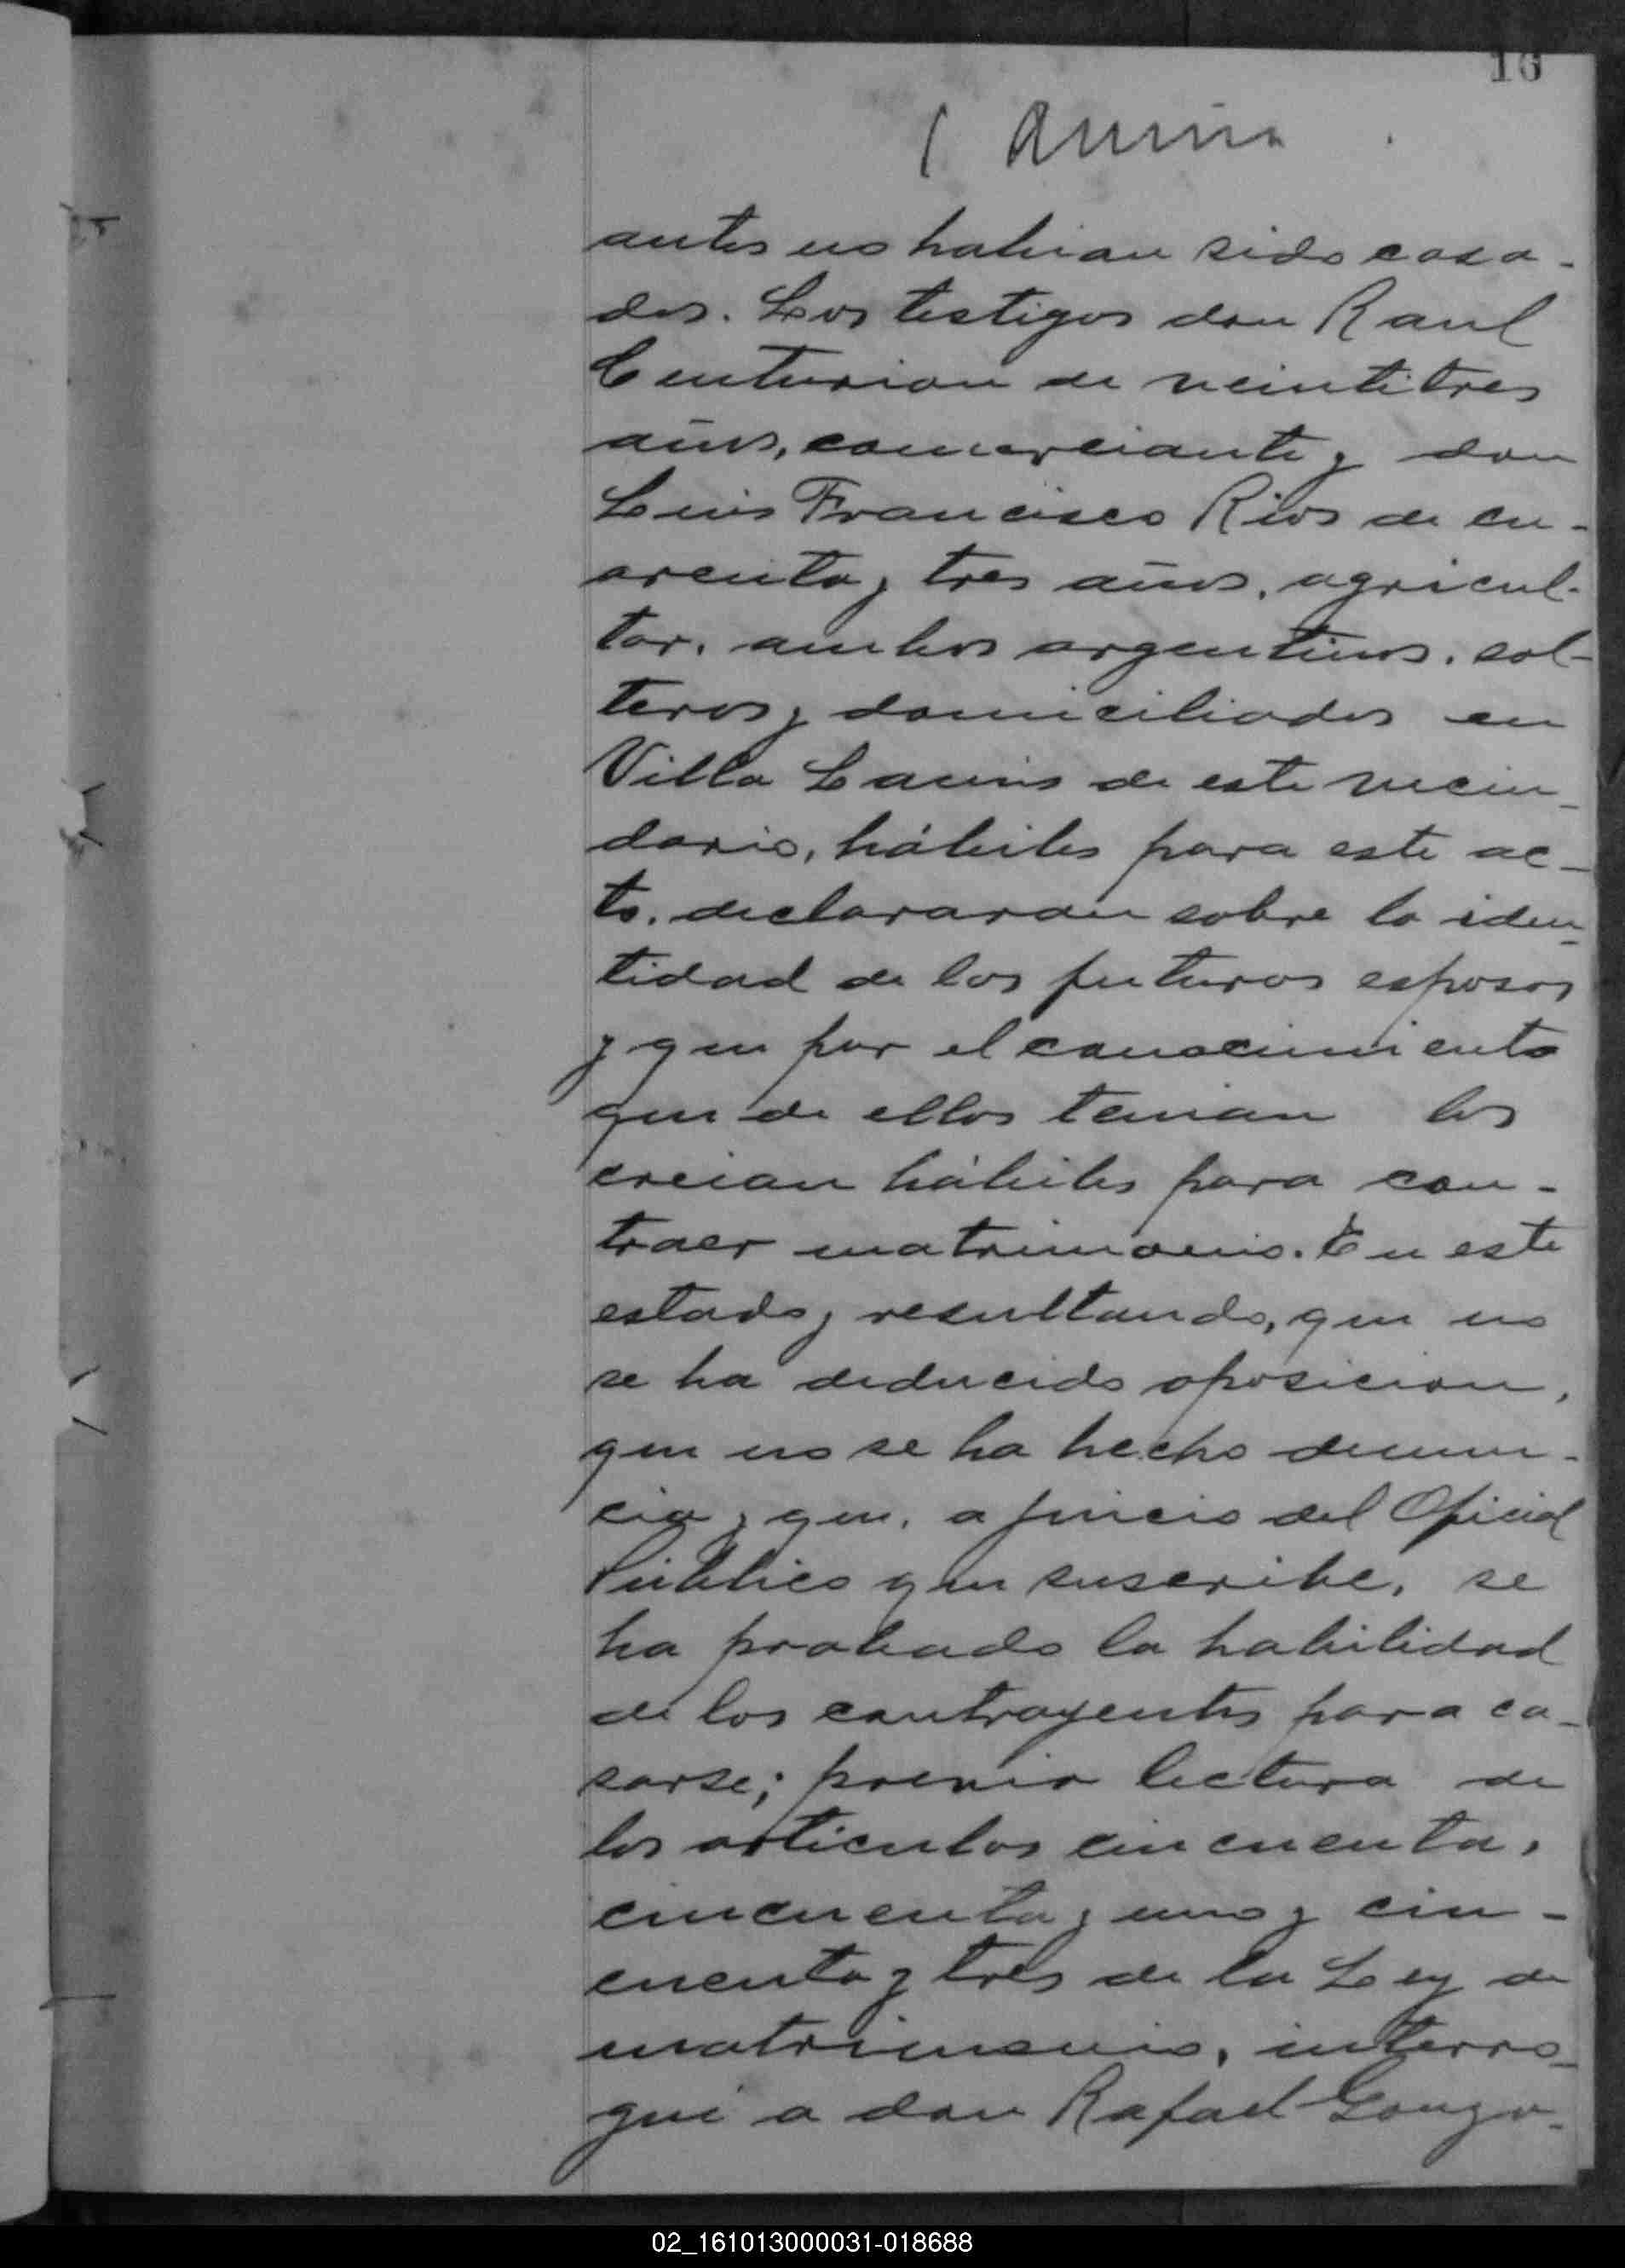 16
antes no habian sido casa-
dos. Los testigos don Raul
Centurion de veintitres
años, comerciante y don
Luis Francisco Rios de cu-
arenta y tres años, agricul-
tor, ambos argentinos, sol-
teros y domiciliados en
Villa de este vecin-
dario, hábiles para este ac-
to, declararon sobre la iden-
tidad de los futuros esposos
y que por el conocimiento
que de ellos tenian los
creian hábiles para con-
traer matrimonio. En este
estado y resultando, que no
se ha deducido oposicion,
que no se ha hecho denun-
cia y que, a juicio del Oficial
Público que suscribe, se
ha probado la habilidad
de los contrayentes para ca-
sarse; previa lectura de
los articulos cincuenta,
cincuenta y uno y cin-
cuenta y tres de la Ley de
matrimonio, interro-
gué a don Rafael Gonza-
02_161013000031-018688